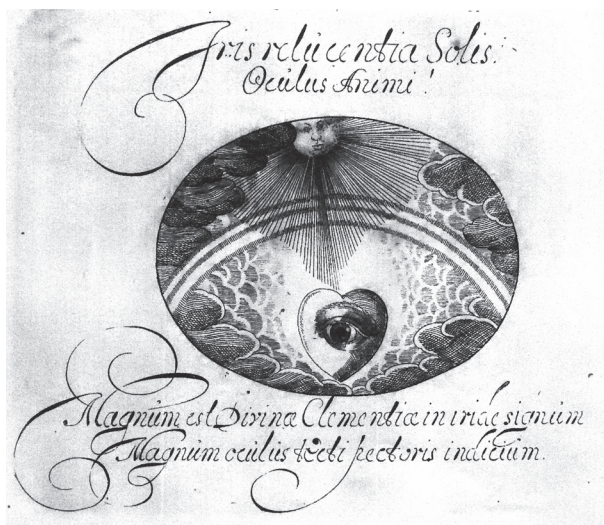 Iris relucentia Solis.
Oculus Animi!
Magnum est Divinæ Clementiæ in iride signum
Magnum oculus tecti pectoris indicium.